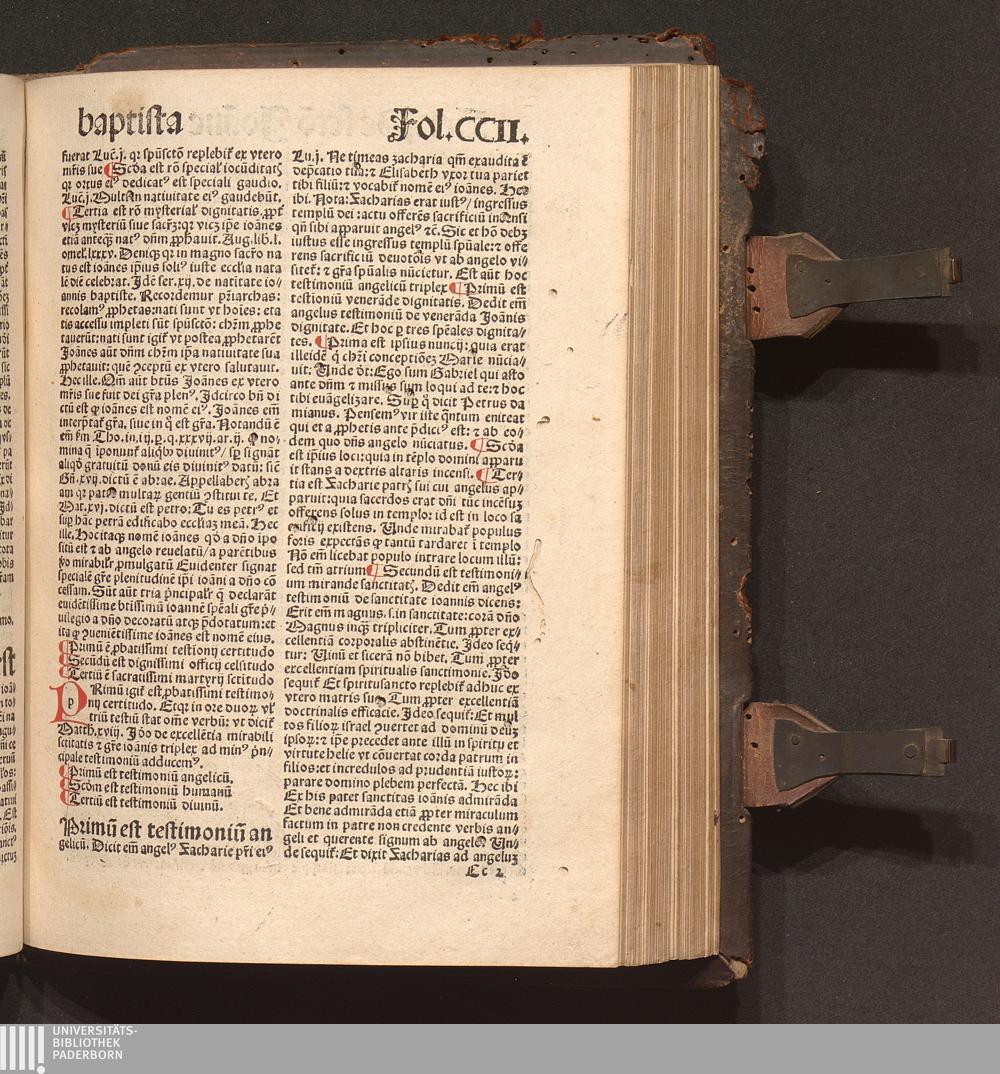 baptista
Fol.CCII.
fuerat Luc̄.j. qꝛ spūsctō replebit᷑ ex vtero
mr̄is sue ¶ Scd̓a est rō special᷑ iocūditatꝭ
qꝛ oꝛtus eiꝰ dedicatꝰ est speciali gaudio.
Luc̄.j. Multi in natiuitate eiꝰ gaudebūt.
¶ Tertia est rō mysterial᷑ dignitatis. ꝓpt᷑
vicꝫ mysteriū siue sacrꝫ: qꝛ vicꝫ ip̄e ioānes
etiā anteqꝫ natꝰ dn̄m ꝓphauit. Aug. lib. l.
omel. lxxxv. Deniqꝫ qꝛ in magno sacr̄o na
tus est ioānes ip̄ius soliꝰ iuste eccl̓ia nata
lē diē celebrat. Jdē ser. xij. de natitate io⸗
annis baptiste. Recordemur pr̄iarchas:
recolamꝰ ꝓphetas: nati sunt vt hoīes: eta
tis accessu impleti sūt spūsctō: chr̄m ꝓphe
tauerūt: nati sunt igit᷑ vt postea ꝓphetarēt
Joānes aūt dn̄m chr̄m ip̄a natiuitate sua
ꝓphetauit: quē ꝯceptū ex vtero salutauit.
Hec ille. Qm̄ aūt btūs Joānes ex vtero
mr̄is sue fuit dei gr̄a plenꝰ. Jdcirco bn̄ di
ctū est ꝙ ioānes est nomē eiꝰ. Joānes em̄
interp̄tat᷑ gr̄a. siue in q̄ est gr̄a. Notandū ē
em̄ ẜm Tho. in. iij. p. q. xxxvij. ar. ij. Q no⸗
mina q̄ iponunt᷑ aliqb᷒ diuinitꝰ/ sꝑ signāt
aliqd̓ gratuitū donū eis diuinitꝰ datū: sic̄
Gn̄. xvij. dictū ē abrae. Appellaberꝭ abra
am qꝛ patrē multaꝝ gentiū ꝯstitui te. Et
Mat. xvj. dictū est petro: Tu es petrꝰ et
suꝑ hāc petrā edificabo eccl̓iaꝫ meā. Hec
ille. Hoc itaqꝫ nomē ioānes qd̓ a dn̄o ipo
sitū est ⁊ ab angelo reuelatū/ a parētibus
ꝟo mirabilr᷑ ꝓmulgatū Euidenter signat
specialē gr̄e plenitudinē ip̄i ioāni a dn̄o cō
cessam. Sūt aūt tria p̄ncipalr᷑ q̄ declarāt
euidētissime btīssimū ioannē spēali gr̄e p̄⸗
uilegio a dn̄o decoratū atqꝫ p̄dotatum: et
ita ꝙ ꝯueniētissime ioānes est nomē eius.
¶ Primū ē ꝓbatissimi testionij certitudo
¶ Secūdū est dignissimi officij celsitudo
¶ Tertiū ē sacratissimi martyrij sctitudo
PRimū igit᷑ est ꝓbatissimi testimo⸗
nij certitudo. Etqꝛ in oꝛe duoꝝ vl̓
triū testiū stat om̄e verbū: vt dicit᷑
Matth. xviij. Jd̓o de excellētia mirabili
sctitatis ⁊ gr̄e ioānis triplex ad minꝰ p̄n⸗
cipale testimoniū adducemꝰ.
¶ Primū est testimoniū angelicū.
¶ Scd̓m est testimoniū humanū
¶ Tertiū est testimoniū diuinū.
Primū est testimoniū an
gelicū. Dicit em̄ angelꝰ Zacharie pr̄i eiꝰ
Lu. j. Ne timeas zacharia qm̄ exaudita ē
depcatio tua: ⁊ Elisabeth vxoꝛ tua pariet
tibi filiū: ⁊ vocabit᷑ nomē eiꝰ ioānes. Hec
ibi. Nota: Zacharias erat iustꝰ/ ingressus
templū dei: actu offerēs sacrificiū incensi
qn̄ sibi apparuit angelꝰ ⁊c̄. Sic et hō debꝫ
iustus esse ingressus templū spūale: ⁊ offe
rens sacrificiū deuotiōis vt ab angelo vi⸗
sitet᷑: ⁊ gr̄a spūalis nūcietur. Est aūt hoc
testimoniū angelicū triplex ¶ Primū est
testioniū venerāde dignitatis. Dedit em̄
angelus testimoniū de venerāda Joānis
dignitate. Et hoc ꝑ tres spēales dignita⸗
tes. ¶ Prima est ipsius nuncij: quia erat
ille idē q̇ chr̄i conceptiōeꝫ Marie nūcia⸗
uit: Unde dt̄: Ego sum Gabriel qui asto
ante dn̄m ⁊ missus sum loqui ad te: ⁊ hoc
tibi euāgelizare. Suꝑ q̄ dicit Petrus da
mianus. Pensemꝰ vir iste qn̄tum eniteat
qui et a ꝓphetis ante p̄dicꝰ est: ⁊ ab eo⸗
dem quo dn̄s angelo nūciatus. ¶ Scd̓a
est ip̄ius loci: quia in tēplo domini apparu
it stans a dextris altaris incensi. ¶ Ter⸗
tia est Zacharie patrꝭ sui cui angelus ap⸗
paruit: quia sacerdos erat dn̄i tūc incēsuꝫ
offerens solus in templo: id est in loco sa
crificij existens. Unde mirabat᷑ populus
foris expectās ꝙ tantū tardaret ī templo
Nō em̄ licebat populo intrare locum illū:
sed tm̄ atrium ¶ Secundū est testimoni⸗
um mirande sanctitatꝭ. Dedit em̄ angelꝰ
testimoniū de sanctitate ioannis dicens:
Erit em̄ magnus. s. in sanctitate: corā dn̄o
Magnus inqꝫ tripliciter. Tum ꝓpter ex⸗
cellentiā corporalis abstinētie. Jdeo seq̄⸗
tur: Uinū et sicerā nō bibet. Tum ꝓpter
excellentiam spiritualis sanctimonie. Jd̓o
sequit᷑ Et spiritusancto replebit᷑ adhuc ex
vtero matris sue Tum ꝓpter excellentiā
doctrinalis efficacie. Jdeo sequit᷑: Et mul
tos filioꝝ israel ꝯuertet ad dominū deuꝫ
ipsoꝝ: ⁊ ip̄e precedet ante illū in spiritu et
virtute helie vt cōuertat corda patrum in
filios: et incredulos ad prudentiā iustoꝝ:
parare domino plebem perfectā. Hec ibi
Ex his patet sanctitas ioānis admirāda
Et bene admirāda etiā ꝓpter miraculum
factum in patre non credente verbis an⸗
geli et querente signum ab angelo Un⸗
de sequit᷑: Et dixit Zacharias ad angeluꝫ
Cc 2
UNIVERSITÄTS-
BIBLIOTHEK
PADERBORN